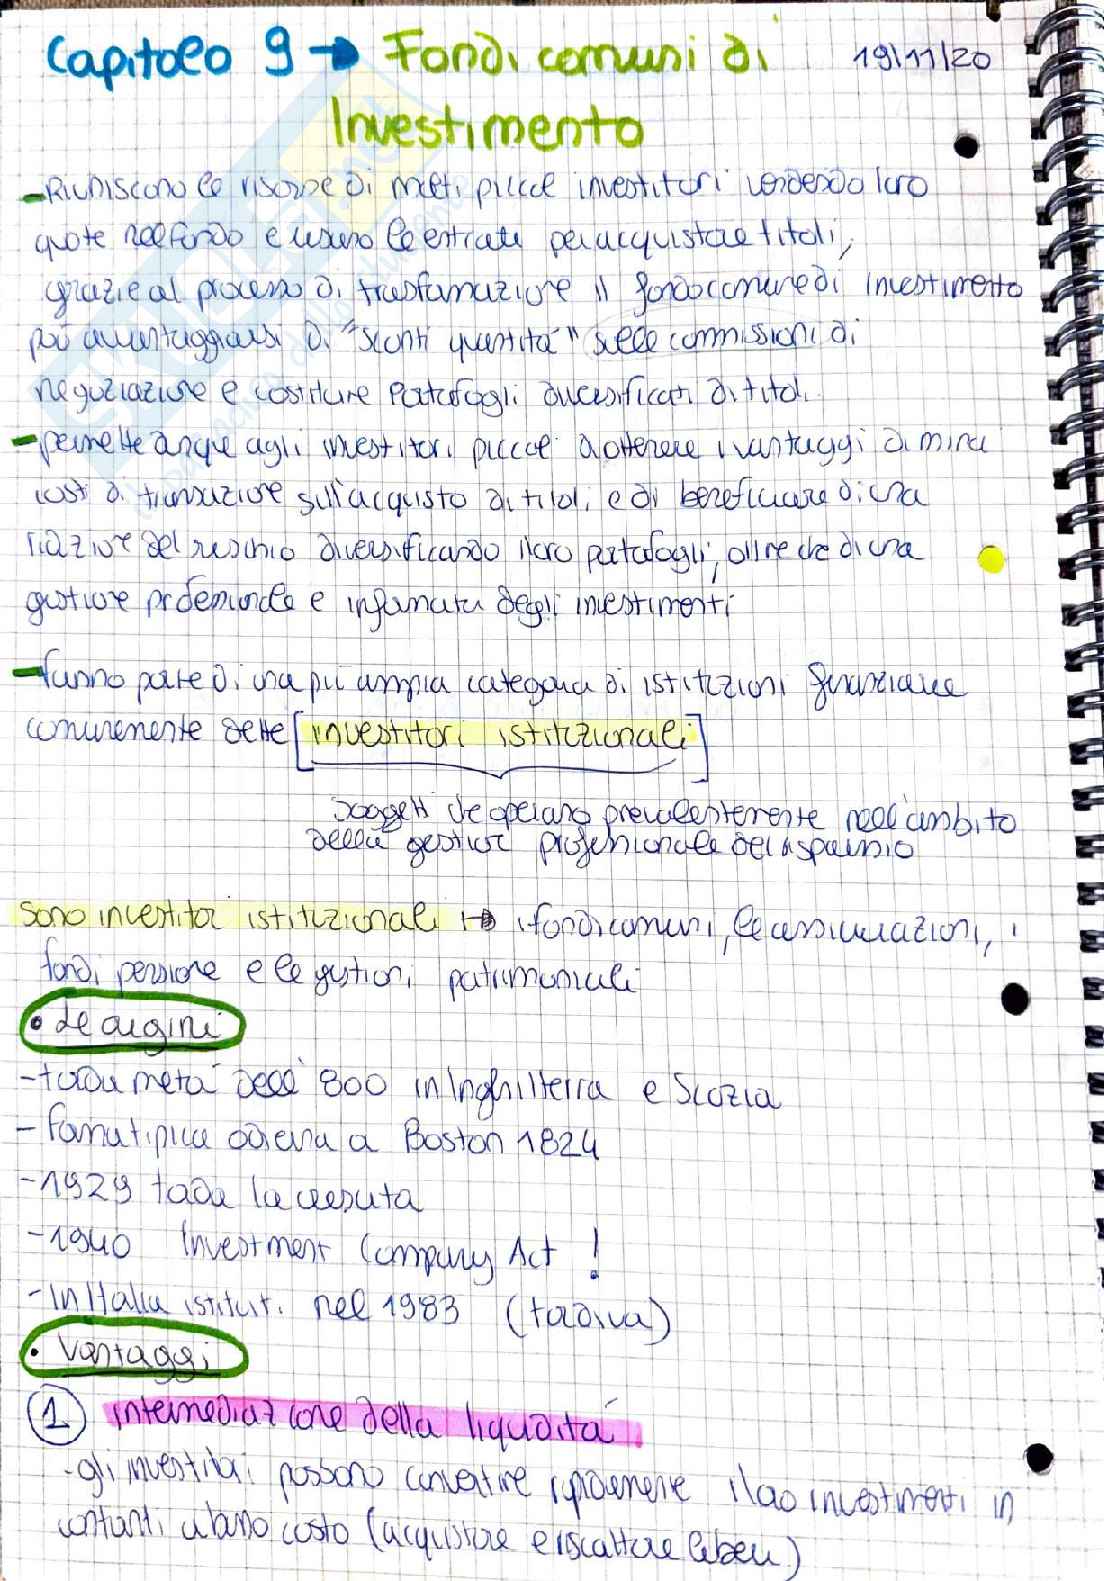 Capitolo 9 → Fondi comuni di 19/11/20
Investimento
- Riuniscono le risorse di molti piccoli investitori vendendo loro
quote nel fondo e usano le entrate per acquistare titoli,
grazie al processo di trasformazione il fondo comune di investimento
può avvantaggiarsi di "sconti quantità" sulle commissioni di
negoziazione e costituire portafogli diversificati di titoli.
- permette anche agli investitori piccoli di ottenere i vantaggi di minori
costi di transazione sull'acquisto di titoli, e di beneficiare di una
riduzione del rischio diversificando i loro portafogli, oltre che di una
gestione professionale e informata degli investimenti
- fanno parte di una più ampia categoria di istituzioni finanziarie
comunemente dette [investitori istituzionali]
soggetti che operano prevalentemente nell'ambito
della gestione professionale del risparmio
sono investitori istituzionali → i fondi comuni, le assicurazioni, i
fondi pensione e le gestioni patrimoniali
• Le origini
- tarda metà dell'800 in Inghilterra e Scozia
- Forma tipica odierna a Boston 1824
- 1929 tarda la crescita
- 1940 Investment Company Act !
- In Italia istituti nel 1983 (tardiva)
• Vantaggi
1 intermediazione della liquidità
- gli investitori possono convertire rapidamente i loro investimenti in
contanti a basso costo (acquistare e riscattare liberi)